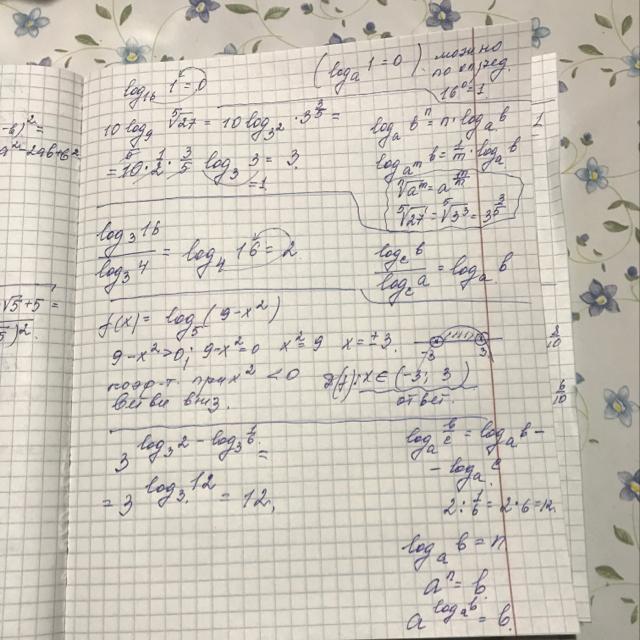 -b)²=
a²-2ab+b²
√5+5=
5)2.
log₁₆ 1=0 (logₐ 1=0) можно
по опред.
16⁰=1
10 log₉ ⁵√27 = 10 log₃² · 3^(3/5) = logₐ bⁿ=n·logₐ b
= 10·1/2·3/5 log₃ 3 = 3. logₐᵐ b=1/m·logₐ b
=1
ⁿ√aᵐ=a^(m/n)
⁵√27=⁵√3³=3^(3/5)
log₃16/log₃4 = log₄ 16=2 log꜀ b/log꜀ a = logₐ b
f(x)= log₅(9-x²)
9-x²>0; 9-x²=0 x²=9 x=±3. -3 3
коэф-т при x² <0 D(f): x∈(-3; 3)
ветви вниз. ответ.
3^(log₃2-log₃1/6) = logₐ b/c=logₐ b-
- logₐ c
= 3^(log₃12) = 12. 2:1/6=2·6=12.
logₐ b=n
aⁿ=b.
a^(logₐb)=b.
1
8/10
6/10